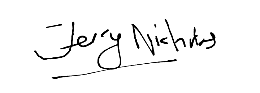 Jerry Nicholas